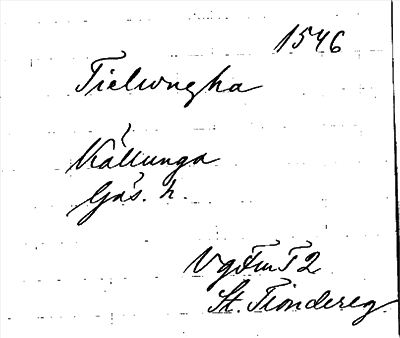 1546
Tielwngha
Källunga
Gäs. h.
VgFmT 2
St. Tiondereg